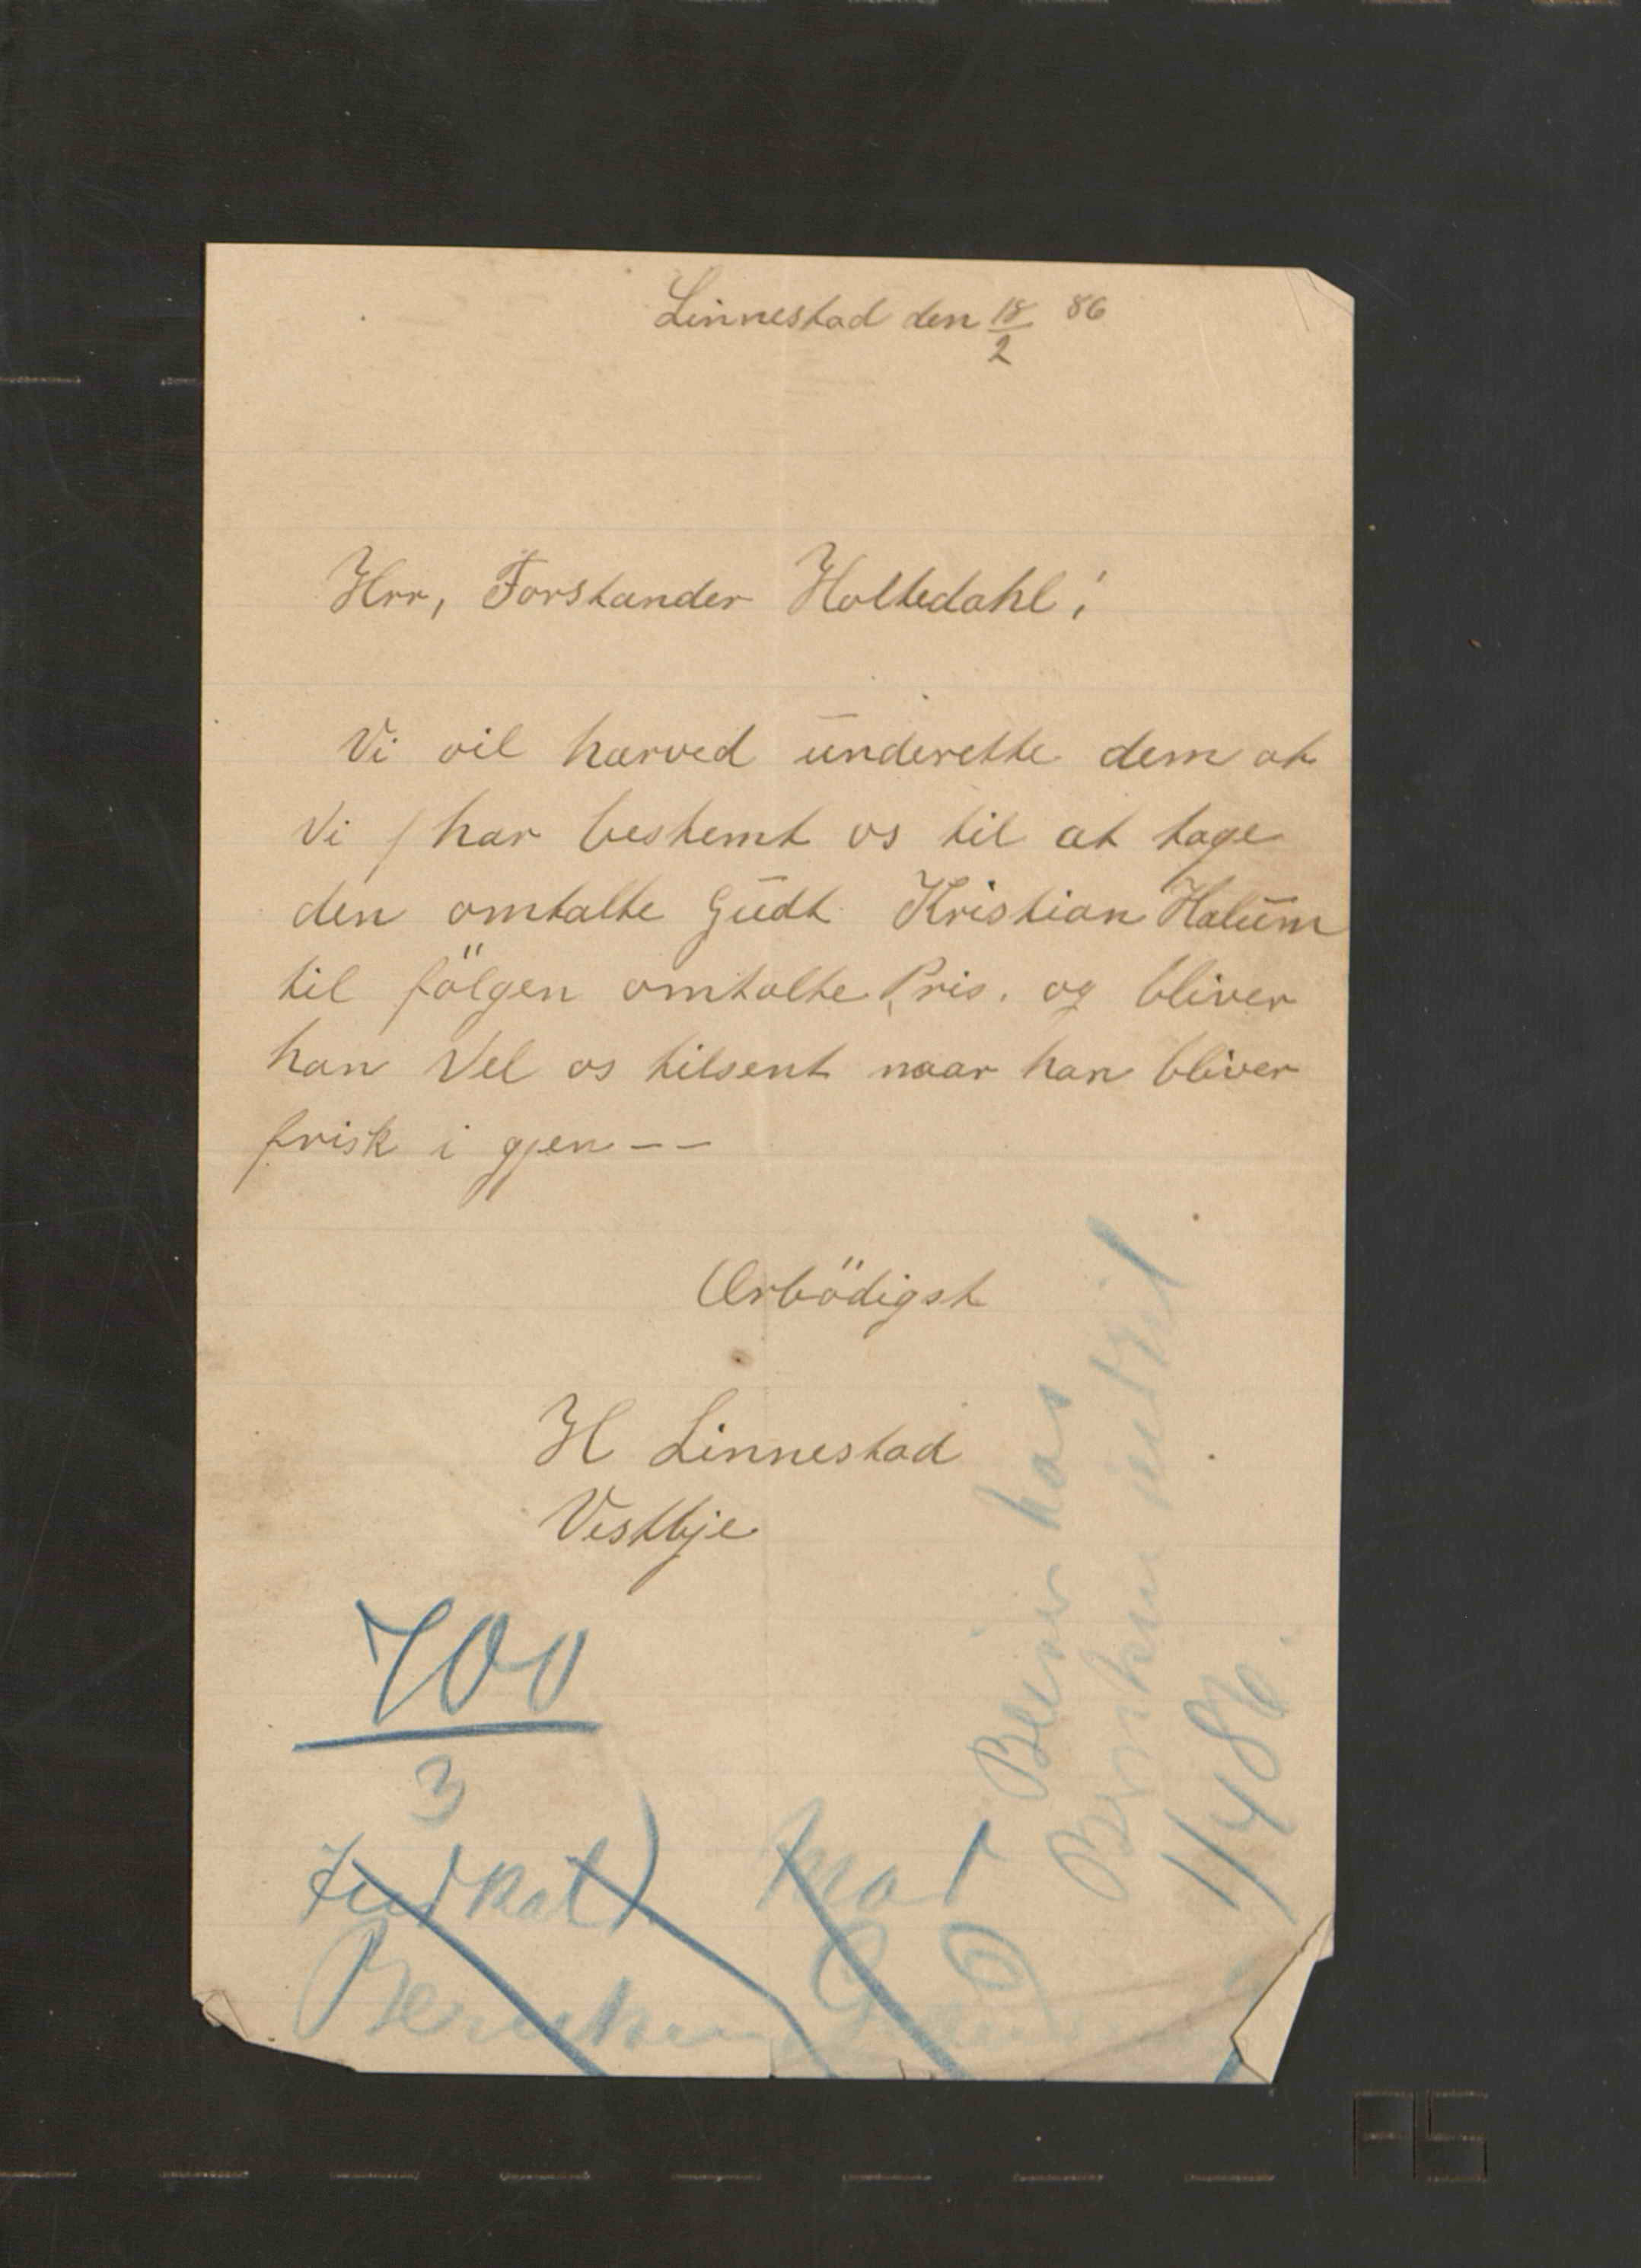 Linnestad den 18/2 86
Hrr, Forstander Holtedahl!
Vi vil hærved ūnderette dem at
Vi har bestemt os til at tage
den omtalte Gūdt Kristian Halūm
til følgen omtalte Pris. og bliver
han Vel os tilsent naar han bliver
frisk i gjen--
Ærbödigst
H Linnestad
Vestbje
700
3
Bliver hos
1/4 86.